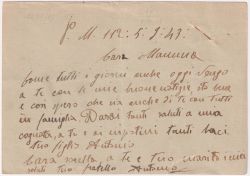 P. M. 112. 5. 9. 43.
Cara Mamma
come tutti i giorni anche oggi vengo
a te con le mie buone notizie, sto bene
e così spero che sia anche di te con tutti
in famiglia tanti saluti a mia
cognata, a te e ai nipotini tanti baci
tuo figlio Antonio
Cara a te e tuo marito
saluti tuo fratello Antonio